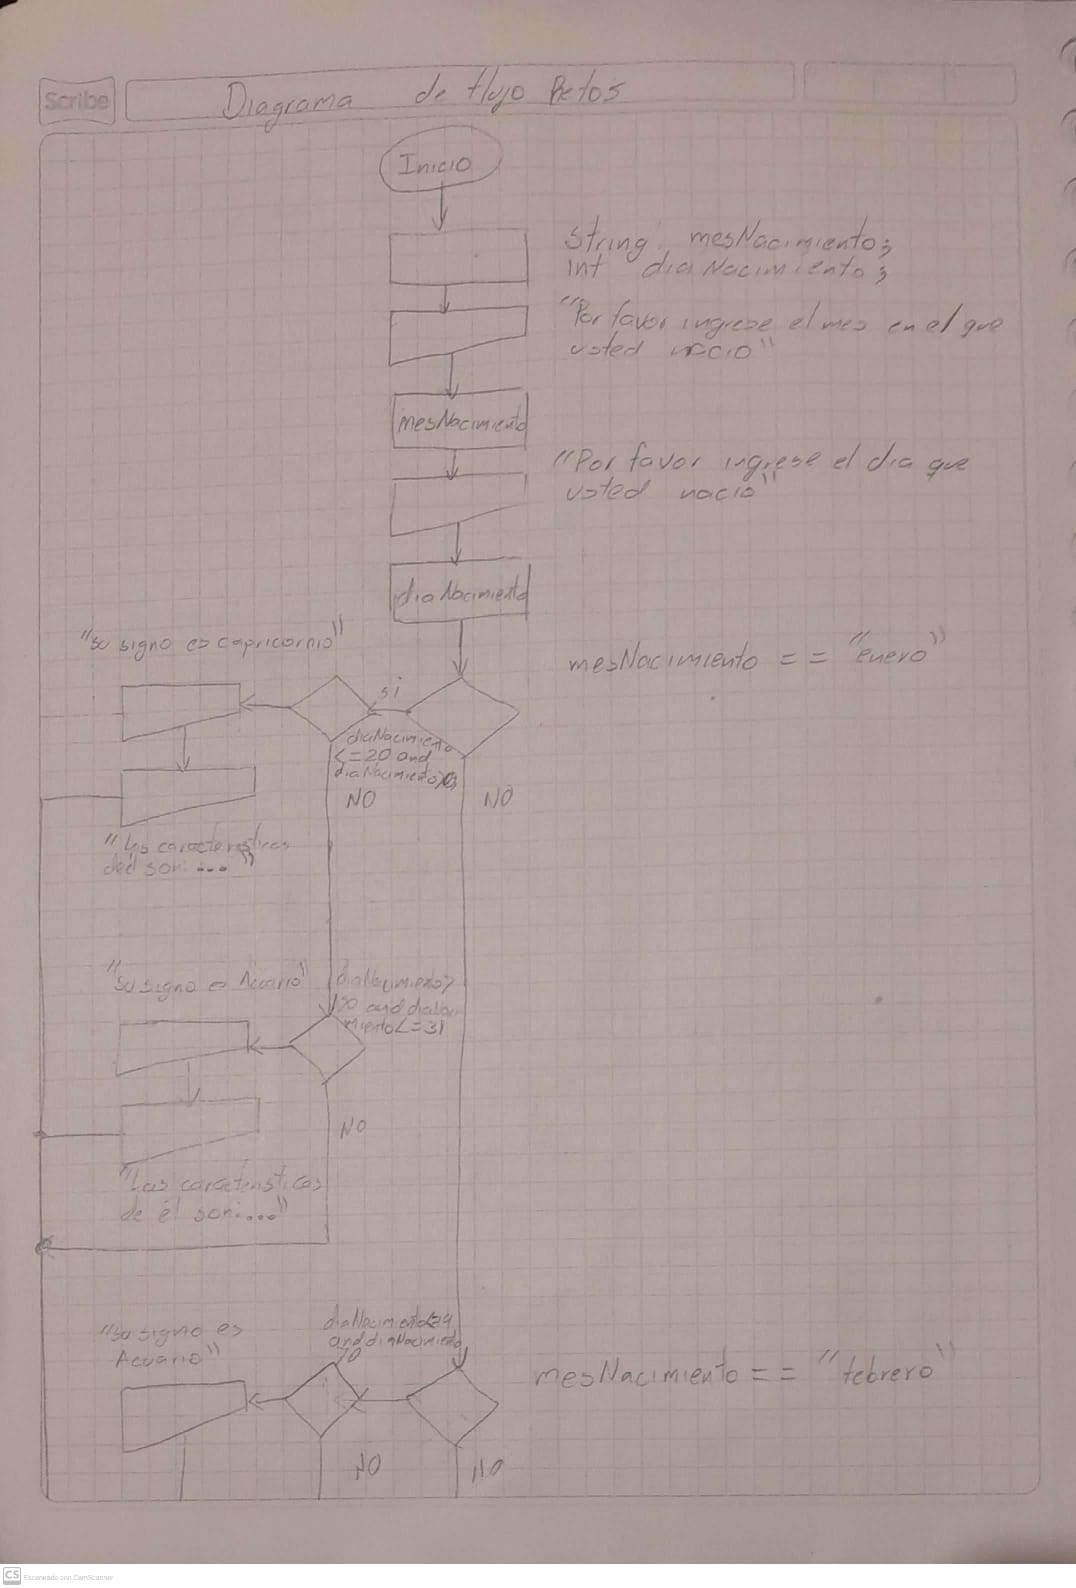 Scribe
Diagrama de flujo Retos
Inicio
String mesNacimiento;
int diaNacimiento;
"Por favor ingrese el mes en el que
usted nacio"
mesNacimiento
"Por favor ingrese el dia que
usted nacio"
diaNacimiento
"su signo es capricornio"
mesNacimiento == "enero"
si
diaNacimiento
<=20 and
diaNacimiento>0
NO
NO
"Las caracteristicas
son: ..."
"su signo es Acuario"
diaNacimiento>
20 and diaNaci
miento<=31
NO
"Las caracteristicas
de él son:..."
"su signo es
Acuario"
diaNacimiento
and diaNacimiento
>0
mesNacimiento == "febrero"
NO
NO
CS Escaneado con CamScanner